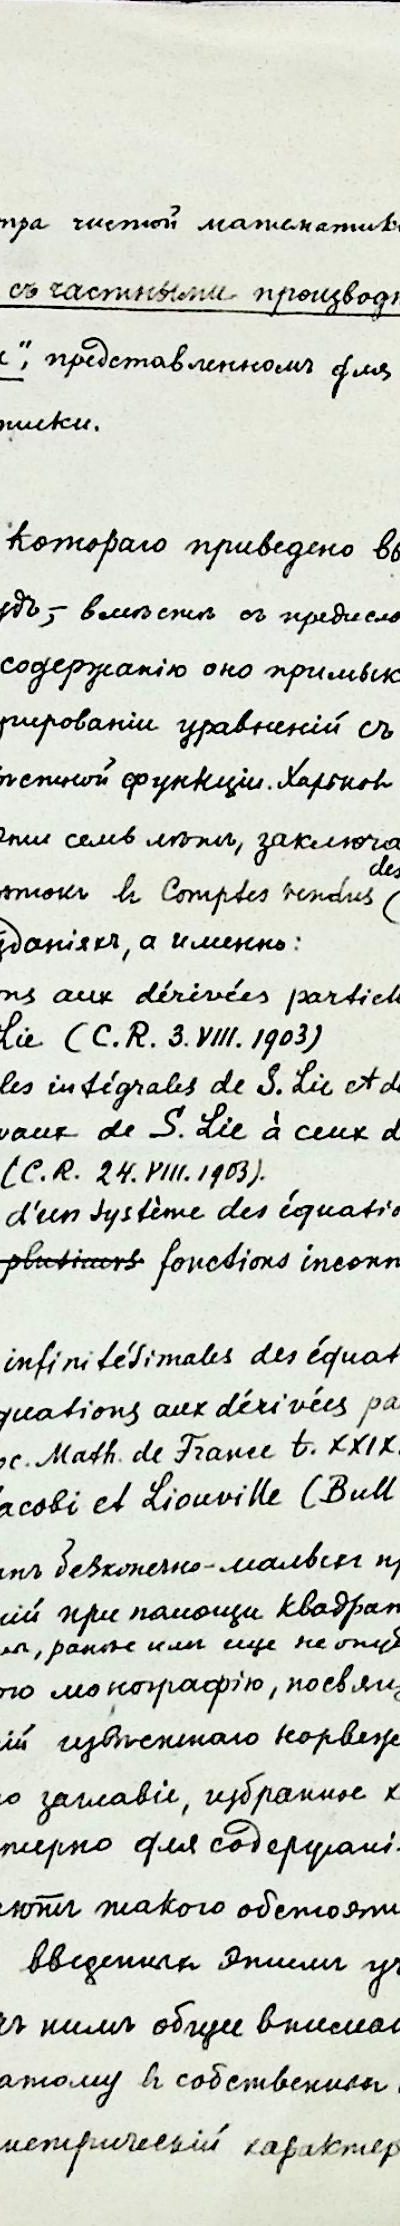 тра чистой математик
съ частными производн
и", представленномъ для
тиски.
котораго приведено вы
удъ, – вмѣстѣ съ предисло
содержанію оно примык
грированіи уравненій съ
вѣстной функціи. Харьков
эти семь лѣтъ, заключа
des
въ Comptes rendus (
зданіяхъ, а именно:
ons aux dérivées partiell
Lie (C.R. 3.VIII.1903)
les intégrales de S. Lie et d
vaux de S. Lie à ceux d
(C.R. 24.VIII.1903).
d'un système des équatio
plusieurs fonctions inconn
infinitésimales des équat
quations aux dérivées pa
oc. Math. de France t. XXIX.
Jacobi et Liouville (Bull
безконечно-малыхъ пр
ній при помощи квадрат
ранѣе или еще не опуб
ого монографію, посвящ
ій извѣстнаго норвеж
о заглавіе, избранное х
терно для содержані
такого обстоят
введенныя этимъ уч
нимъ общее вниман
атому въ собственны
метрическій характер